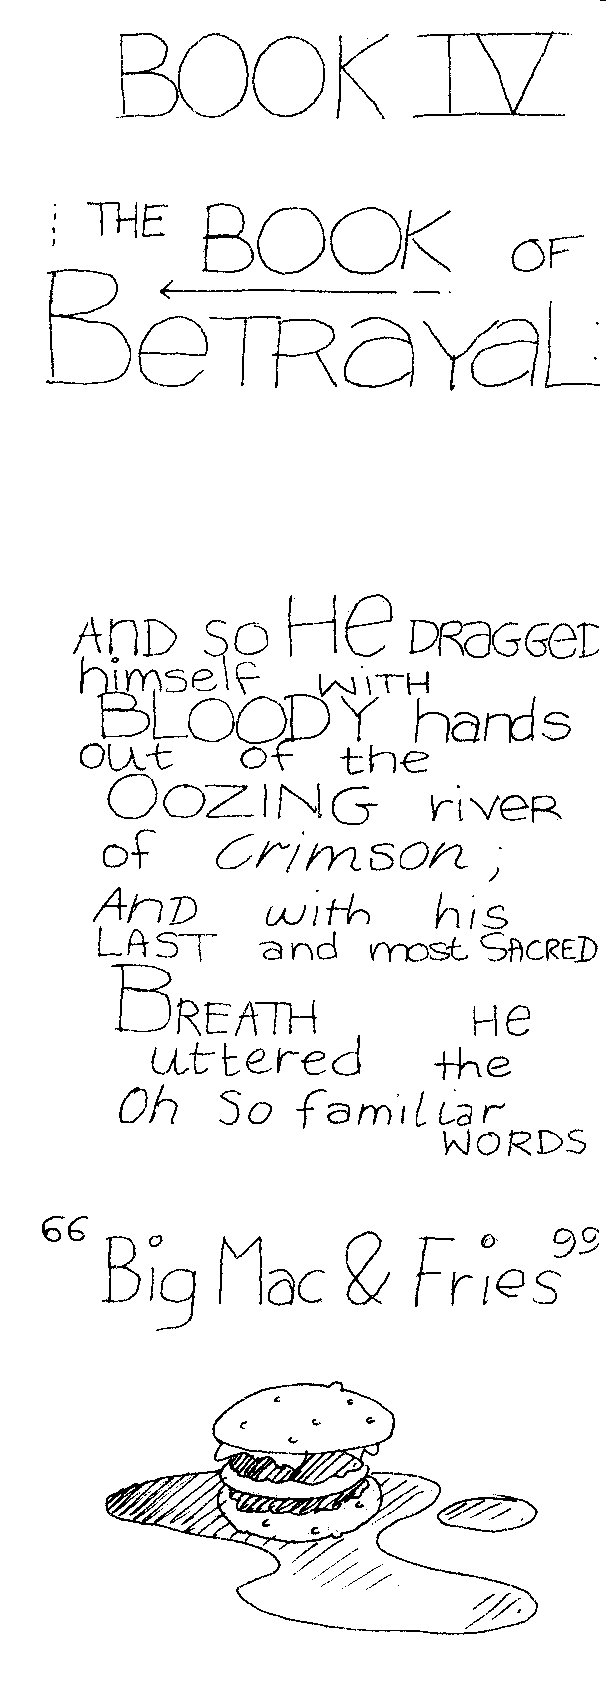 BOOK IV
THE BOOK OF
BeTRayaL:
AnD so He DRaGGeD
himself WiTH
BLOODY hands
out of the
OOZING riveR
of Crimson;
AnD with his
LAST and most SACRED
BREATH He
uttered the
Oh So familiar
WORDS
“Big Mac & Fries”